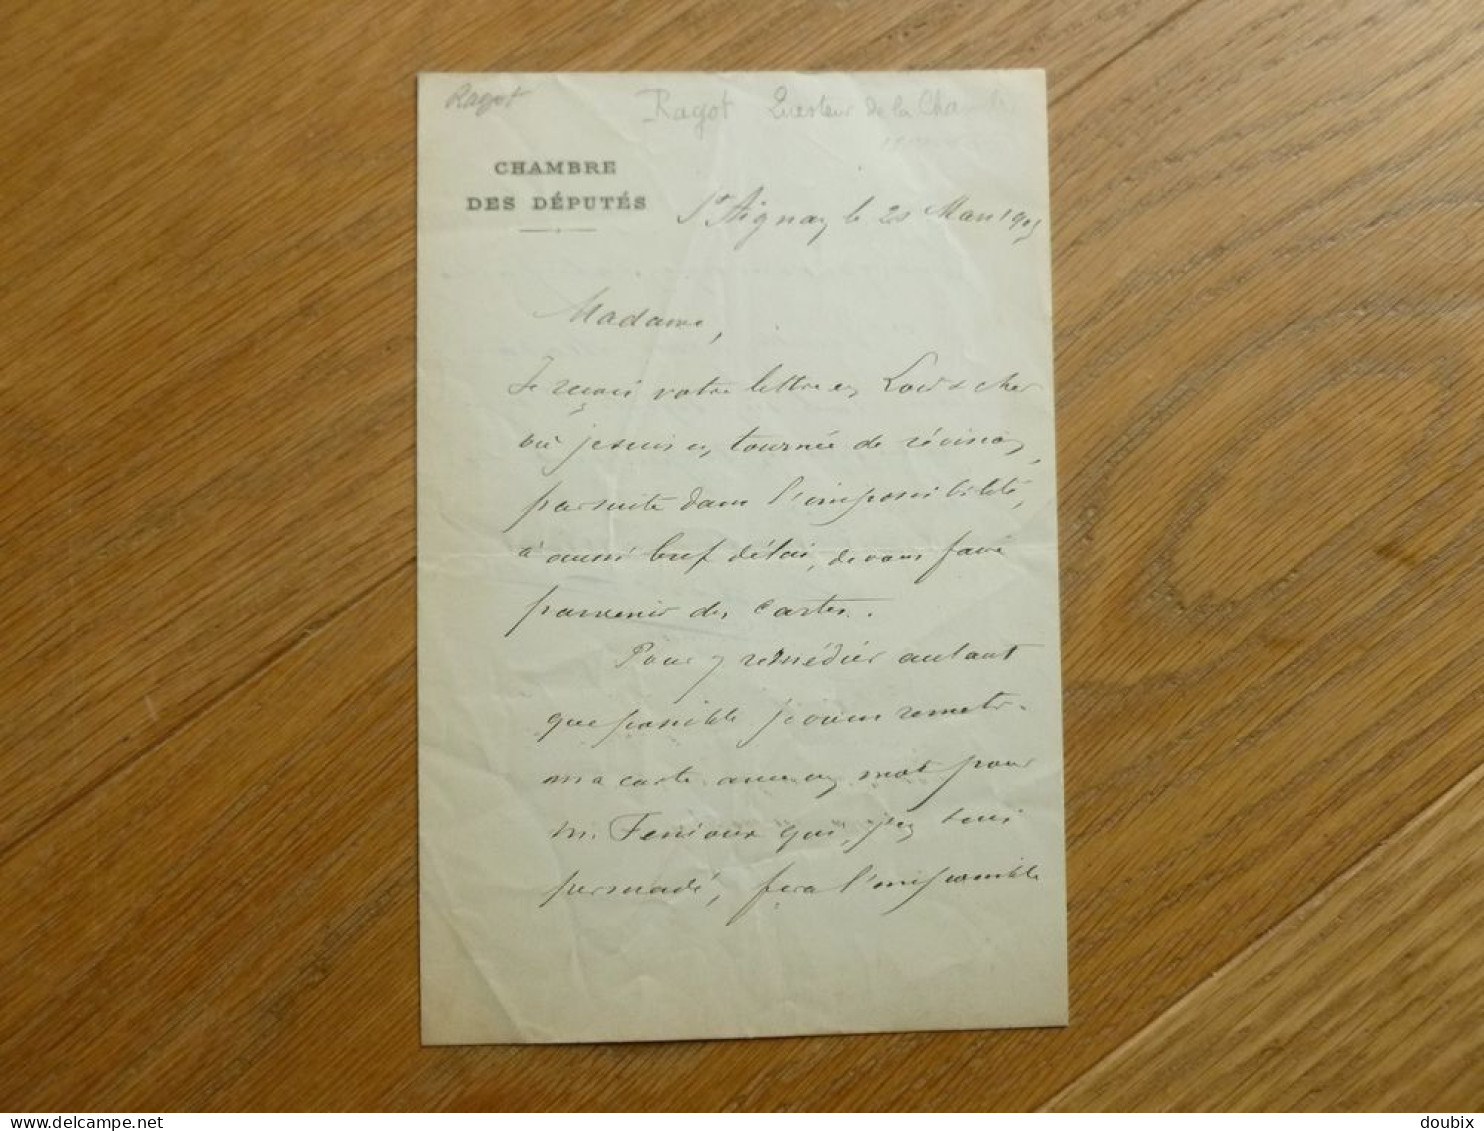 Ragot
Ragot Questeur de la Chambre
CHAMBRE
DES DÉPUTÉS
St Aignan, le 20 Mars 1905
Madame,
Je reçois votre lettre en Loir & Cher
où je suis en tournée de révision,
par suite dans l'impossibilité,
à aussi bref délai, de vous faire
parvenir des cartes.
Pour y remédier autant
que possible je viens remettre
ma carte avec un mot pour
M. Fenioux qui, j'en suis
persuadé, fera l'impossible
delcampe.net
doubix